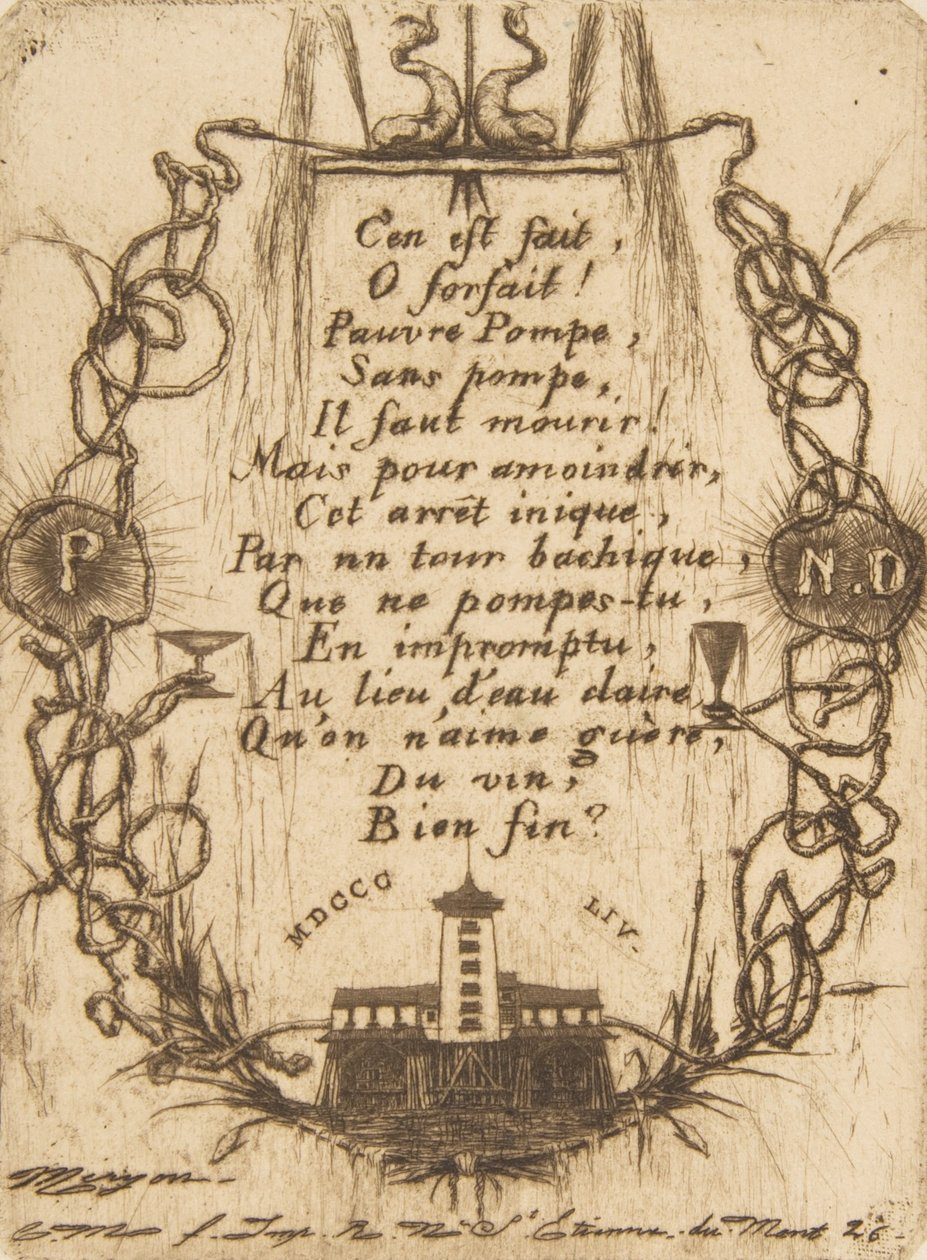 C'en est fait,
O forfait!
Pauvre Pompe,
Sans pompe,
Il faut mourir!
Mais pour amoindrir,
Cet arrêt inique,
Par nn tour bachique,
Que ne pompes-tu,
En impromptu,
Au lieu d'eau claire,
Qu'on n'aime guère,
Du vin,
Bien fin?
P
N.D
MDCCC LIV.
Meryon.
C. M. f. Imp. R. Ne St Etienne du Mont 26.